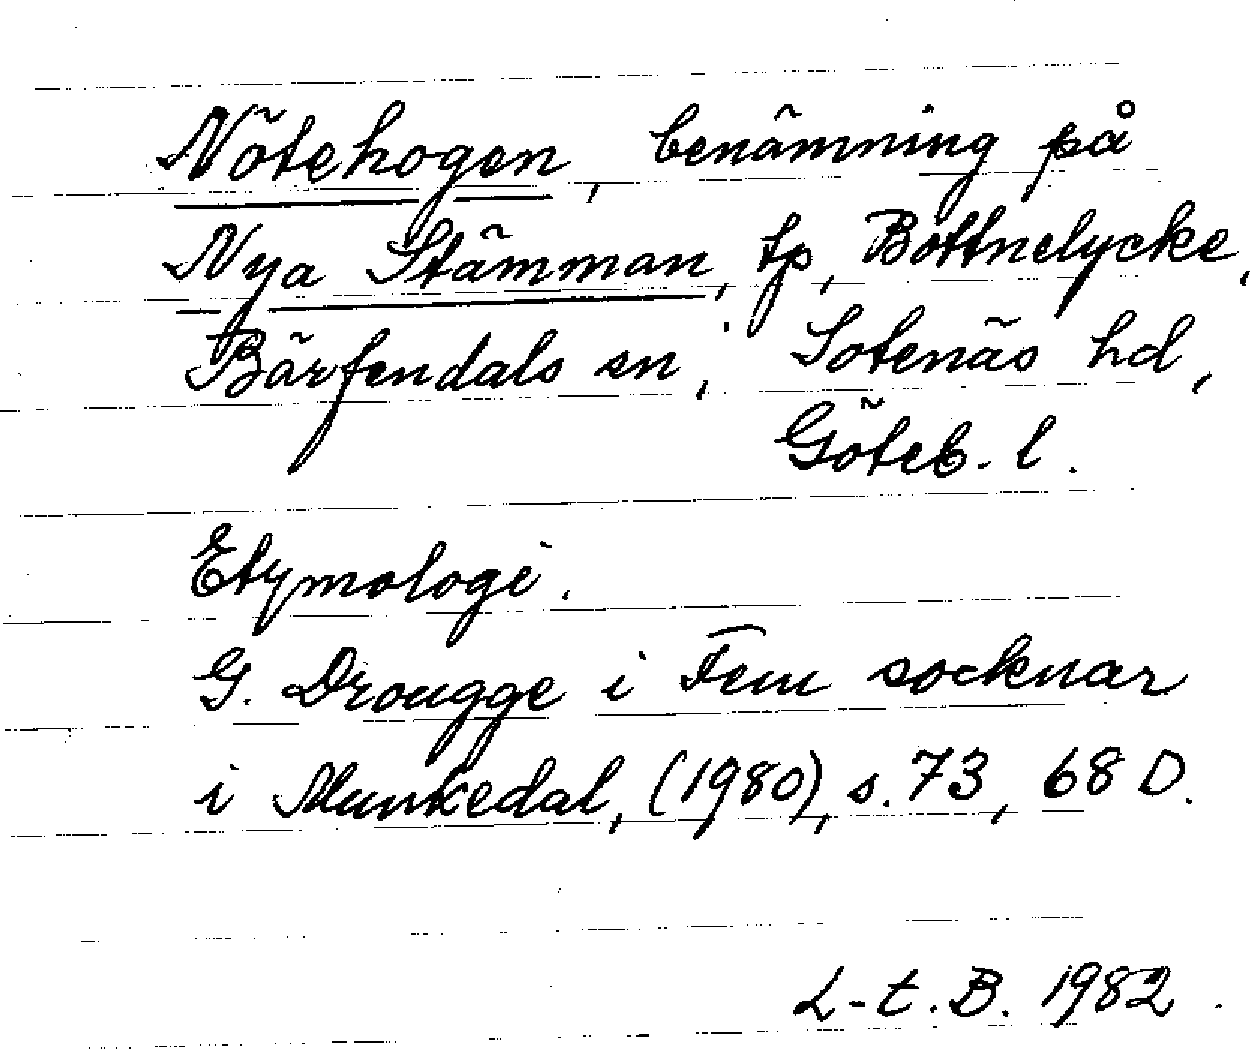 Nötehogen, benämning på
Nya Stämman, tp, Bottnelycke,
Bärfendals sn, Sotenäs hd,
Göteb. l.
Etymologi.
G. Drougge i Fem socknar
i Munkedal, (1980), s. 73, 68 D.
L-t. B. 1982.